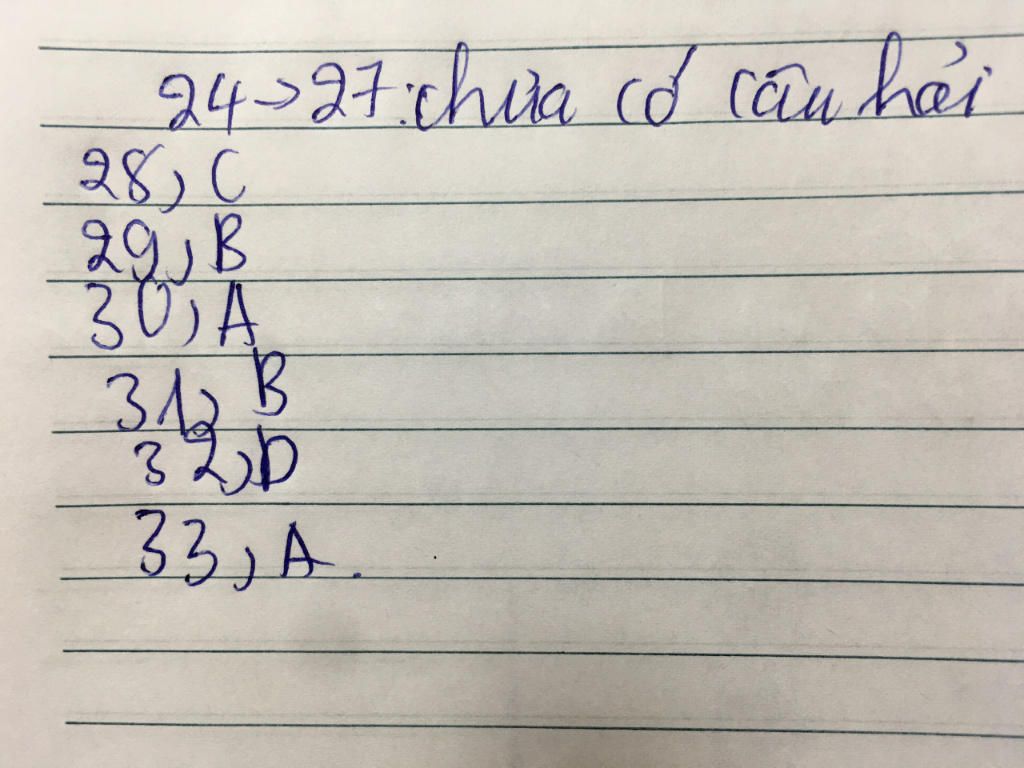 24→27: chưa có câu hỏi
28, C
29, B
30, A
31, B
32, D
33, A.